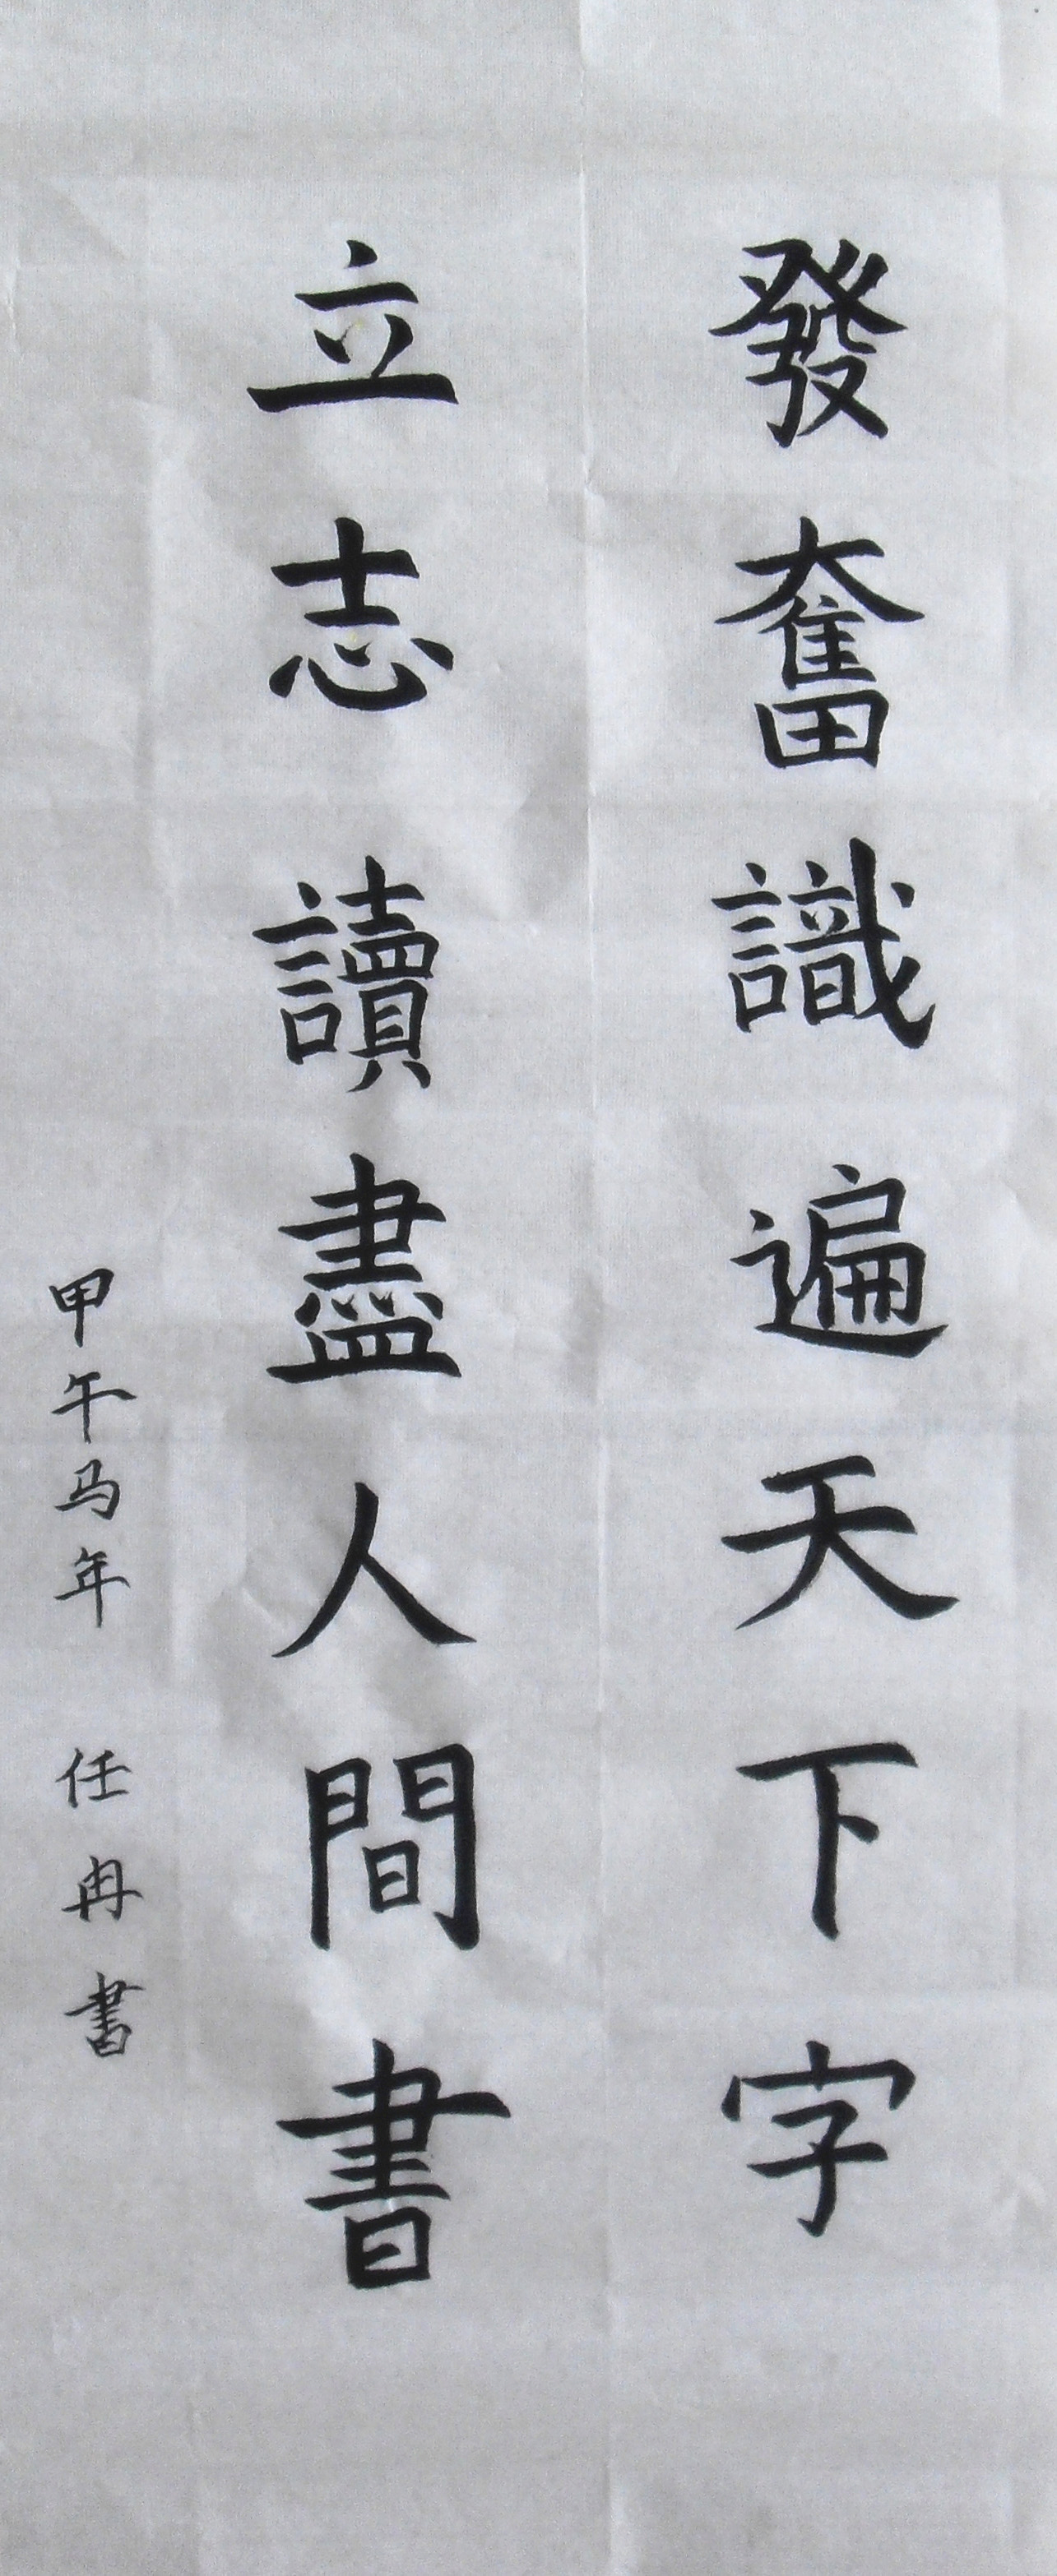 發奮識遍天下字
立志讀盡人間書
甲午马年 任冉書